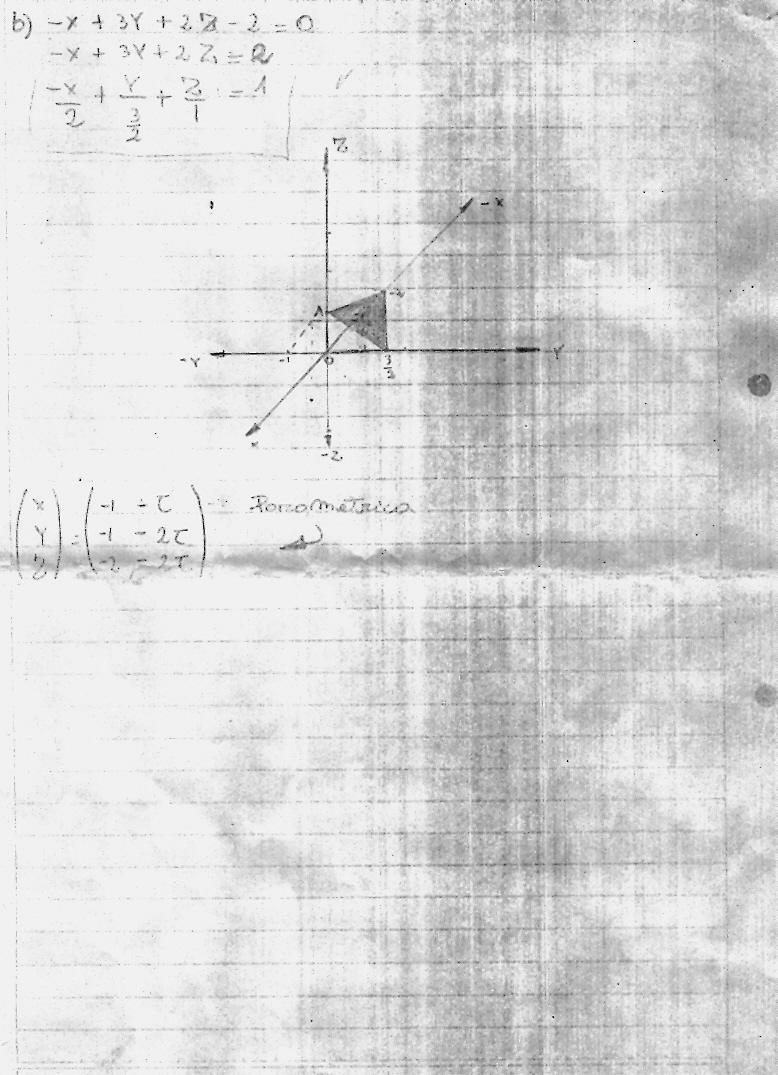 b) -x + 3Y + 2Z - 2 = 0
-x + 3Y + 2Z = 2
-x/2 + Y/(3/2) + Z/1 = 1
Z
-x
-2
1
-Y -1 0 3/2 Y
x
-2
(x Y Z) = (-1 - τ, -1 - 2τ, -2 - 2τ) → Parametrica